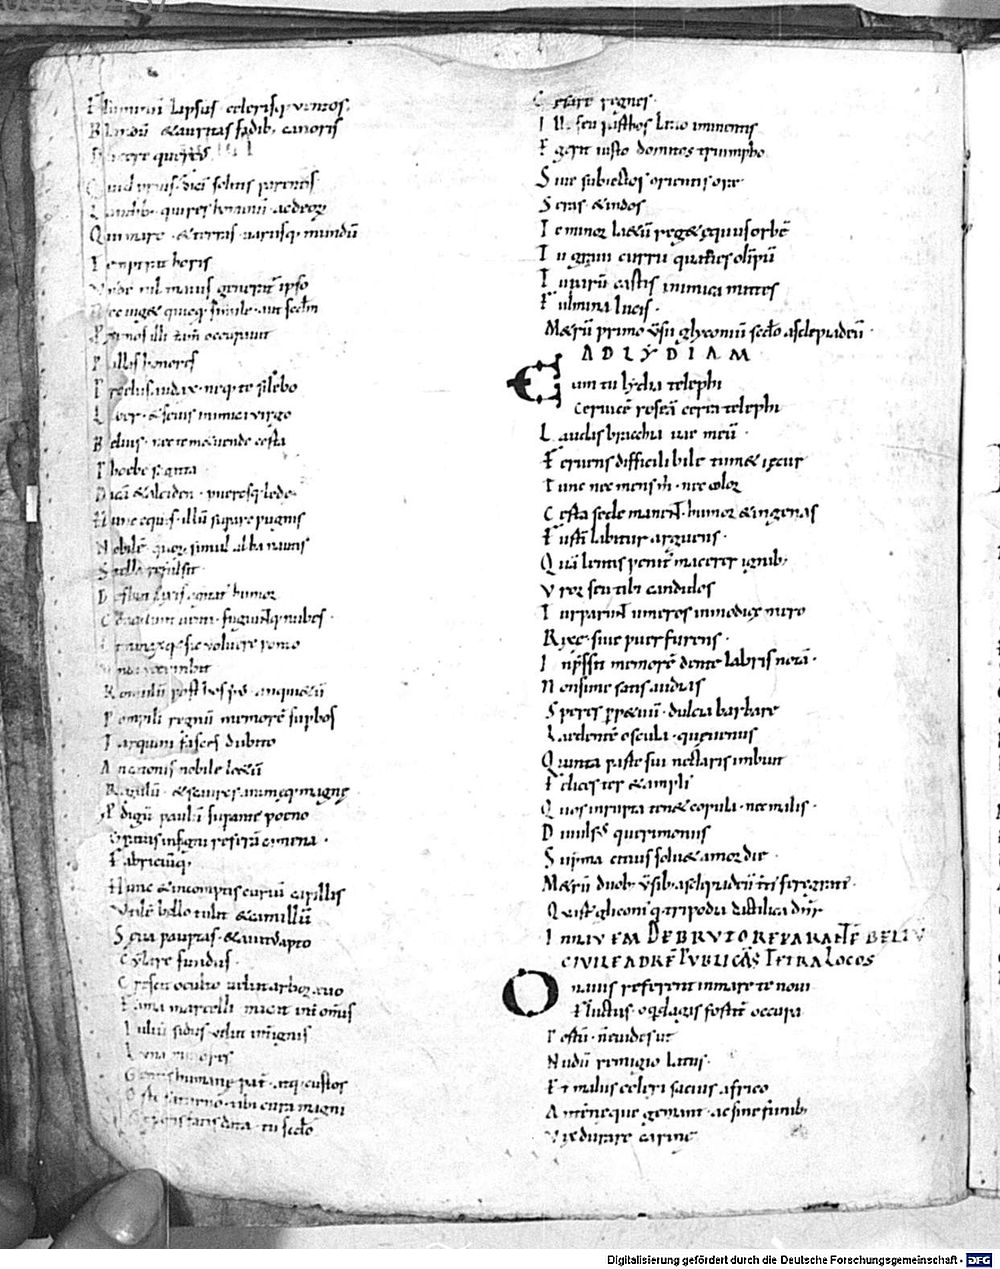 Fluminum lapsus celerisq; ventos
Blandū & auritas fidib; canoris
Ducere quercus
Quid prius dicā solitis parentis
Laudib; qui res hominū ac deoꝝ
Qui mare & terras uariisq; mundū
Temperat horis
Vnde nil maius generat ipso
Nec uig& quicq̄ simile aut scdm
Proximos illi tam̄ occupauit
Pallas honores
Proelus audax neq; te silebo
Liber & seuis inimica uirgo
Beluis nec te metuende certa
Phoebe sagitta
Dicā & alciden puerosq; ledę
Hunc equis illū supare pugnis
Nobilē quoꝝ simul alba nautis
Stella refulsit
Defluit saxis agitat' humor
Concidunt uenti fugiuntq; nubes
Romulū post hos prius an quietū
Pompili regnū memorē supbos
Tarquini fasces dubito
An catonis nobile loetū
Regulū & scauros animęq; magnę
Pdigū paulū supante poeno
Gratus insigni referā camena
Fabriciūq;
Hunc & incomptis curiū capillis
Vtilē bello tulit & camillū
Seua paupertas & auitus apto
Cū lare fundus
Crescit occulto uelut arbor ęuo
Fama marcelli micat int̄ om̄s
Iuliū sidus uelut int̄ ignis
Luna minores
Gentis humanę pat̄ atq; custos
Orte saturno tibi cura magni
Cęsaris fatis data tu scdo
Cesare regnes
Ille seu parthos latio imminentis
Egerit iusto domitos triumpho
Siue subiectos orientis orę
Seras & indos
Te minor laetū reg& ęquus orbē
Tu graui curru quaties olimpū
Tu parū castis inimica mittes
Fulmina lucis
M&rū primo ūsu glyconiū scdo asclepiadeū
AD LYDIAM
Cum tu lydia telephi
Ceruicē roseā cerea telephi
Laudas bracchia uae meū
Feruens difficili bile tum& iecur
Tunc nec mens m̄ nec color
Certa sede manent humor & in genas
Furtī labitur arguens
Quā lentis penit' macerer ignib;
Vror seu tibi candidos
Turparunt umeros inmodicę mero
Rixę siue puer furens
Inp̄ssit memorē dente labris notā
Non si me satis audias
Speres ppetuū dulcia barbare
Laedentē oscula quę uenus
Quinta parte sui nectaris imbuit
Felices ter & ampli'
Quos inrupta ten& copula nec malis
Diuulsus querimoniis
Suprema citius solu& amor die
M&rū duob; ūsib; asclepiadeū
INIIV EM DE BRVTO REPARANTĒ BELLV
CIVILE AD RĒPVBLICĀ
O nauis referent in mare te noui
Fluctus o qd agis fortit̄ occupa
Portū n̄ne uides ut
Nudū remigio latus
Et malus celeri saucius africo
Antēneque gemant ac sine funib;
Vix durare carinę
Digitalisierung gefördert durch die Deutsche Forschungsgemeinschaft - DFG